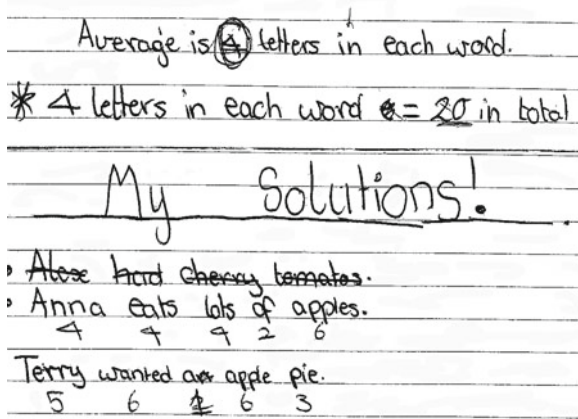 Average is 4 letters in each word.
* 4 letters in each word = 20 in total
My Solutions!
• had cherry tomatos.
• Anna eats lots of apples.
4 4 4 2 6
Terry wanted a apple pie.
5 6 1 6 3